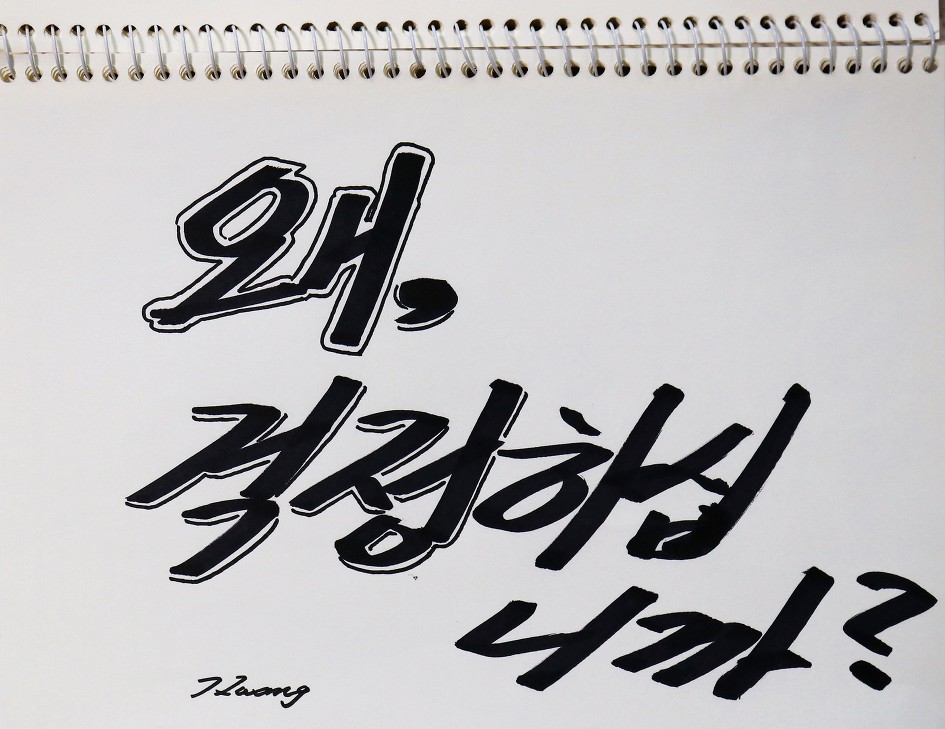 왜,
걱정하십
니까?
Hwang